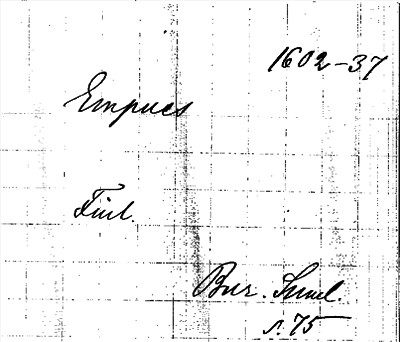 1602-37
Empues
Finl.
Bur. Suml.
s. 75